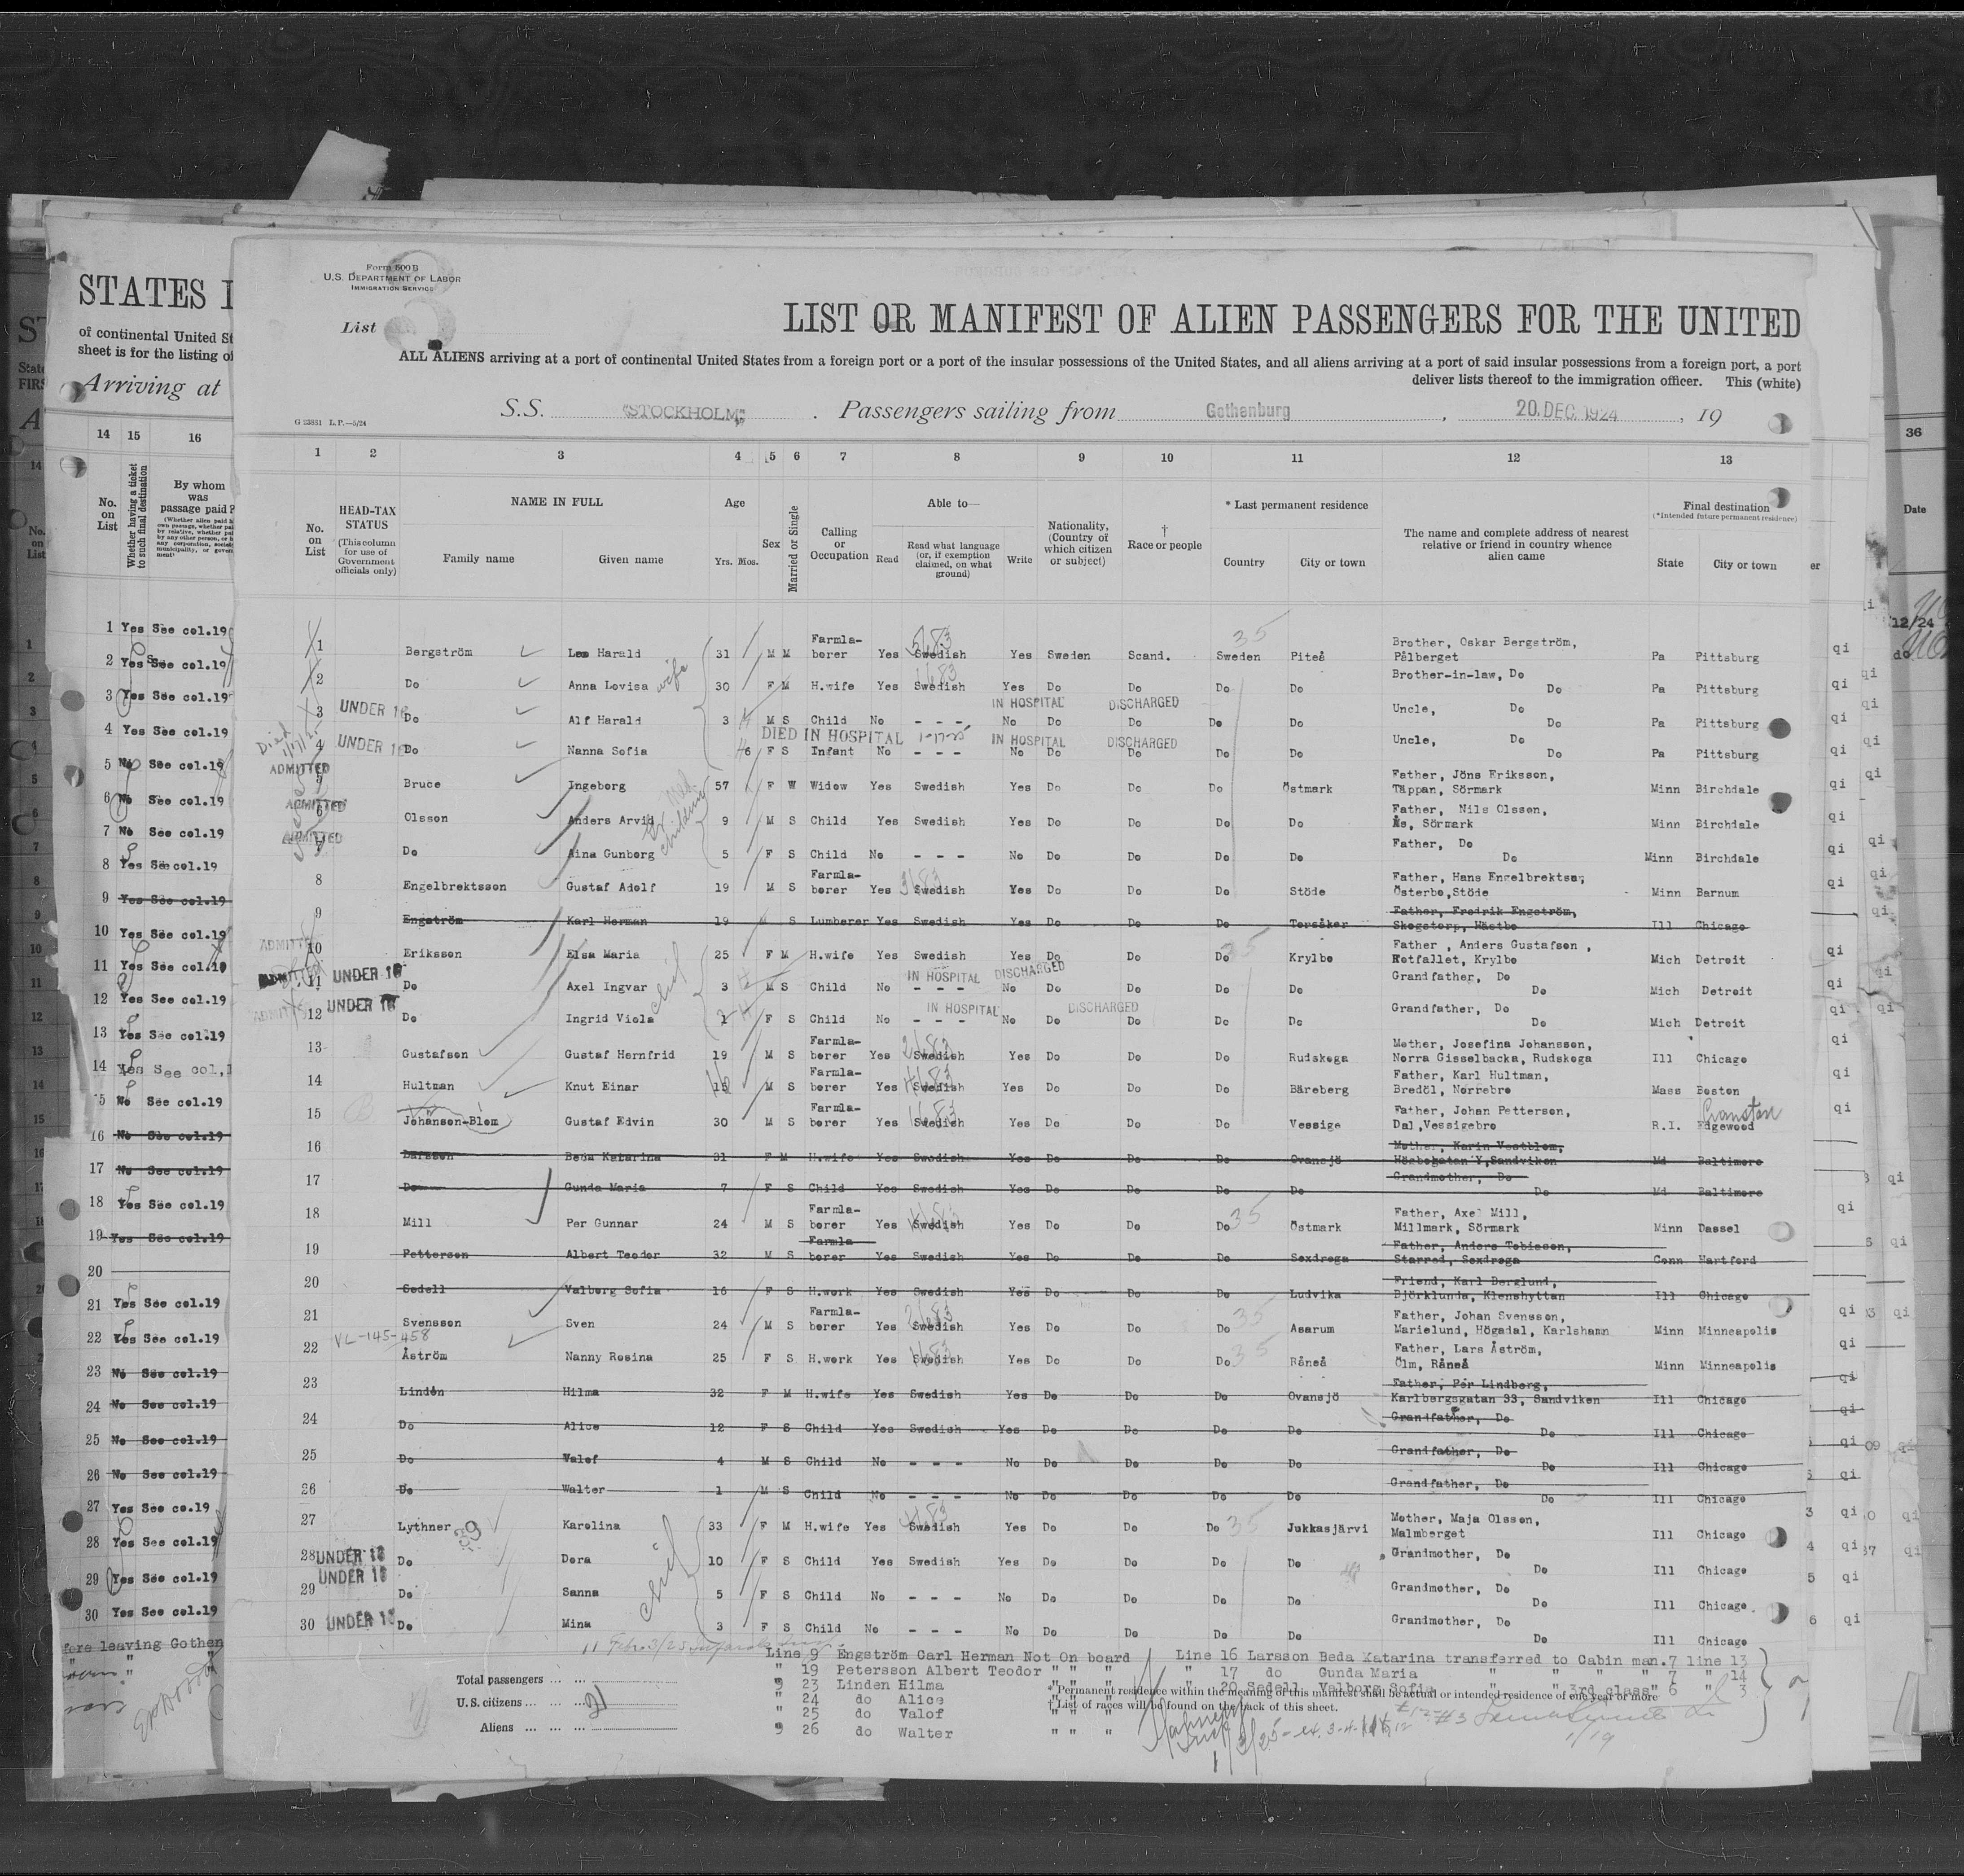 Form 500 B
U.S. DEPARTMENT OF LABOR
IMMIGRATION SERVICE
List
LIST OR MANIFEST OF ALIEN PASSENGERS FOR THE UNITED
ALL ALIENS arriving at a port of continental United States from a foreign port or a port of the insular possessions of the United States, and all aliens arriving at a port of said insular possessions from a foreign port, a port
deliver lists thereof to the immigration officer. This (white)
S.S. "STOCKHOLM" . Passengers sailing from Gothenburg , 20.DEC.1924 , 19
G 23831 L.P.—5/24
1 2 3 4 5 6 7 8 9 10 11 12 13
No. on List
HEAD-TAX STATUS (This column for use of Government officials only)
NAME IN FULL Family name Given name
Age Yrs. Mos.
Sex
Married or Single
Calling or Occupation
Able to— Read Read what language (or, if exemption claimed, on what ground) Write
Nationality, (Country of which citizen or subject)
† Race or people
* Last permanent residence Country City or town
The name and complete address of nearest relative or friend in country whence alien came
Final destination (*Intended future permanent residence) State City or town
1 Bergström Leo Harald 31 M M Farmla-borer Yes Swedish Yes Sweden Scand. Sweden Piteå Brother, Oskar Bergström, Pålberget Pa Pittsburg
2 Do Anna Lovisa wife 30 F M H.wife Yes Swedish Yes Do Do Do Do Brother-in-law, Do Do Pa Pittsburg
IN HOSPITAL DISCHARGED
3 UNDER 16 Do Alf Harald 3 M S Child No - - - No Do Do Do Do Uncle, Do Do Pa Pittsburg
DIED IN HOSPITAL 1-17-25 IN HOSPITAL DISCHARGED
4 UNDER 16 Do Nanna Sofia 6 F S Infant No - - - No Do Do Do Do Uncle, Do Do Pa Pittsburg
ADMITTED
5 Bruce Ingeborg 57 F W Widow Yes Swedish Yes Do Do Do Östmark Father, Jöns Eriksson, Täppan, Sörmark Minn Birchdale
ADMITTED
6 Olsson Anders Arvid 9 M S Child Yes Swedish Yes Do Do Do Do Father, Nils Olsson, Ås, Sörmark Minn Birchdale
ADMITTED
7 Do Aina Gunborg 5 F S Child No - - - No Do Do Do Do Father, Do Do Minn Birchdale
8 Engelbrektsson Gustaf Adolf 19 M S Farmla-borer Yes Swedish Yes Do Do Do Stöde Father, Hans Engelbrektson, Österbo,Stöde Minn Barnum
9 Engström Karl Herman 19 S Lumberer Yes Swedish Yes Do Do Do Torsåker Father, Fredrik Engström, Skogstorp, Hästbo Ill Chicago
10 Eriksson Elsa Maria 25 F M H.wife Yes Swedish Yes Do Do Do Krylbo Father , Anders Gustafson , Rotfallet, Krylbo Mich Detroit
IN HOSPITAL DISCHARGED
11 UNDER 16 Do Axel Ingvar 3 M S Child No - - - No Do Do Do Do Grandfather, Do Do Mich Detroit
IN HOSPITAL DISCHARGED
12 UNDER 16 Do Ingrid Viola 1 F S Child No - - - No Do Do Do Do Grandfather, Do Do Mich Detroit
13 Gustafson Gustaf Hernfrid 19 M S Farmla-borer Yes Swedish Yes Do Do Do Rudskoga Mother, Josefina Johansson, Norra Gisselbacka, Rudskoga Ill Chicago
14 Hultman Knut Einar 15 M S Farmla-borer Yes Swedish Yes Do Do Do Bäreberg Father, Karl Hultman, Bredöl, Norrebro Mass Boston
15 Johanson-Blom Gustaf Edvin 30 M S Farmla-borer Yes Swedish Yes Do Do Do Vessige Father, Johan Petterson, Dal,Vessigebro R.I. Edgewood Cranston
16 Larsson Beda Katarina 31 F M H.wife Yes Swedish Yes Do Do Do Ovansjö Mother, Karin Vestblom, Högbogatan Y,Sandviken Md Baltimore
17 Do Gunda Maria 7 F S Child Yes Swedish Yes Do Do Do Do Grandmother, Do Do Md Baltimore
18 Mill Per Gunnar 24 M S Farmla-borer Yes Swedish Yes Do Do Do Östmark Father, Axel Mill, Millmark, Sörmark Minn Dassel
19 Petterson Albert Teodor 32 M S Farmla-borer Yes Swedish Yes Do Do Do Sexdrega Father, Anders Tobiasson, Starred, Sexdrega Conn Hartford
20 Sedell Valborg Sofia 16 F S H.work Yes Swedish Yes Do Do Do Ludvika Friend, Karl Berglund, Björklunda, Klenshyttan Ill Chicago
21 Svensson Sven 24 M S Farmla-borer Yes Swedish Yes Do Do Do Asarum Father, Johan Svensson, Marielund, Högadal, Karlshamn Minn Minneapolis
VL-145-458
22 Åström Nanny Rosina 25 F S H.work Yes Swedish Yes Do Do Do Råneå Father, Lars Åström, Ölm, Råneå Minn Minneapolis
23 Lindén Hilma 32 F M H.wife Yes Swedish Yes Do Do Do Ovansjö Father, Per Lindberg, Karlbergsgatan 33, Sandviken Ill Chicago
24 Do Alice 12 F S Child Yes Swedish Yes Do Do Do Do Grandfather, Do Do Ill Chicago
25 Do Valof 4 M S Child No - - - No Do Do Do Do Grandfather, Do Do Ill Chicago
26 Do Walter 1 M S Child No - - - No Do Do Do Do Grandfather, Do Do Ill Chicago
27 Lythner Karolina 33 F M H.wife Yes Swedish Yes Do Do Do Jukkasjärvi Mother, Maja Olsson, Malmberget Ill Chicago
28 UNDER 16 Do Dora 10 F S Child Yes Swedish Yes Do Do Do Do Grandmother, Do Do Ill Chicago
29 UNDER 16 Do Sanna 5 F S Child No - - - No Do Do Do Do Grandmother, Do Do Ill Chicago
30 UNDER 16 Do Mina 3 F S Child No - - - No Do Do Do Do Grandmother, Do Do Ill Chicago
Line 9 Engström Carl Herman Not On board
" 19 Petersson Albert Teodor " " "
" 23 Linden Hilma " " "
" 24 do Alice " " "
" 25 do Valof " " "
" 26 do Walter " " "
Line 16 Larsson Beda Katarina transferred to Cabin man.7 line 13
" 17 do Gunda Maria " " " " 7 " 14
" 20 Sedell Valborg Sofia " " 3rd class" 6 " 3
Total passengers
U.S. citizens
Aliens
* Permanent residence within the meaning of this manifest shall be actual or intended residence of one year or more
† List of races will be found on the back of this sheet.
STATES
of continental United St
sheet is for the listing of
Arriving at
14 15 16
No. on List
Whether having a ticket to such final destination
By whom was passage paid?
1 Yes See col.19
2 Yes See col.19
3 Yes See col.19
4 Yes See col.19
5 No See col.19
6 No See col.19
7 No See col.19
8 Yes See col.19
9 Yes See col.19
10 Yes See col.19
11 Yes See col.19
12 Yes See col.19
13 Yes See col.19
14 Yes See col.1
15 No See col.19
16 No See col.19
17 No See col.19
18 Yes See col.19
19 Yes See col.19
20
21 Yes See col.19
22 Yes See col.19
23 No See col.19
24 No See col.19
25 No See col.19
26 No See col.19
27 Yes See co.19
28 Yes See col.19
29 Yes See col.19
30 Yes See col.19
fore leaving Gothen
36
Date
12/24
do